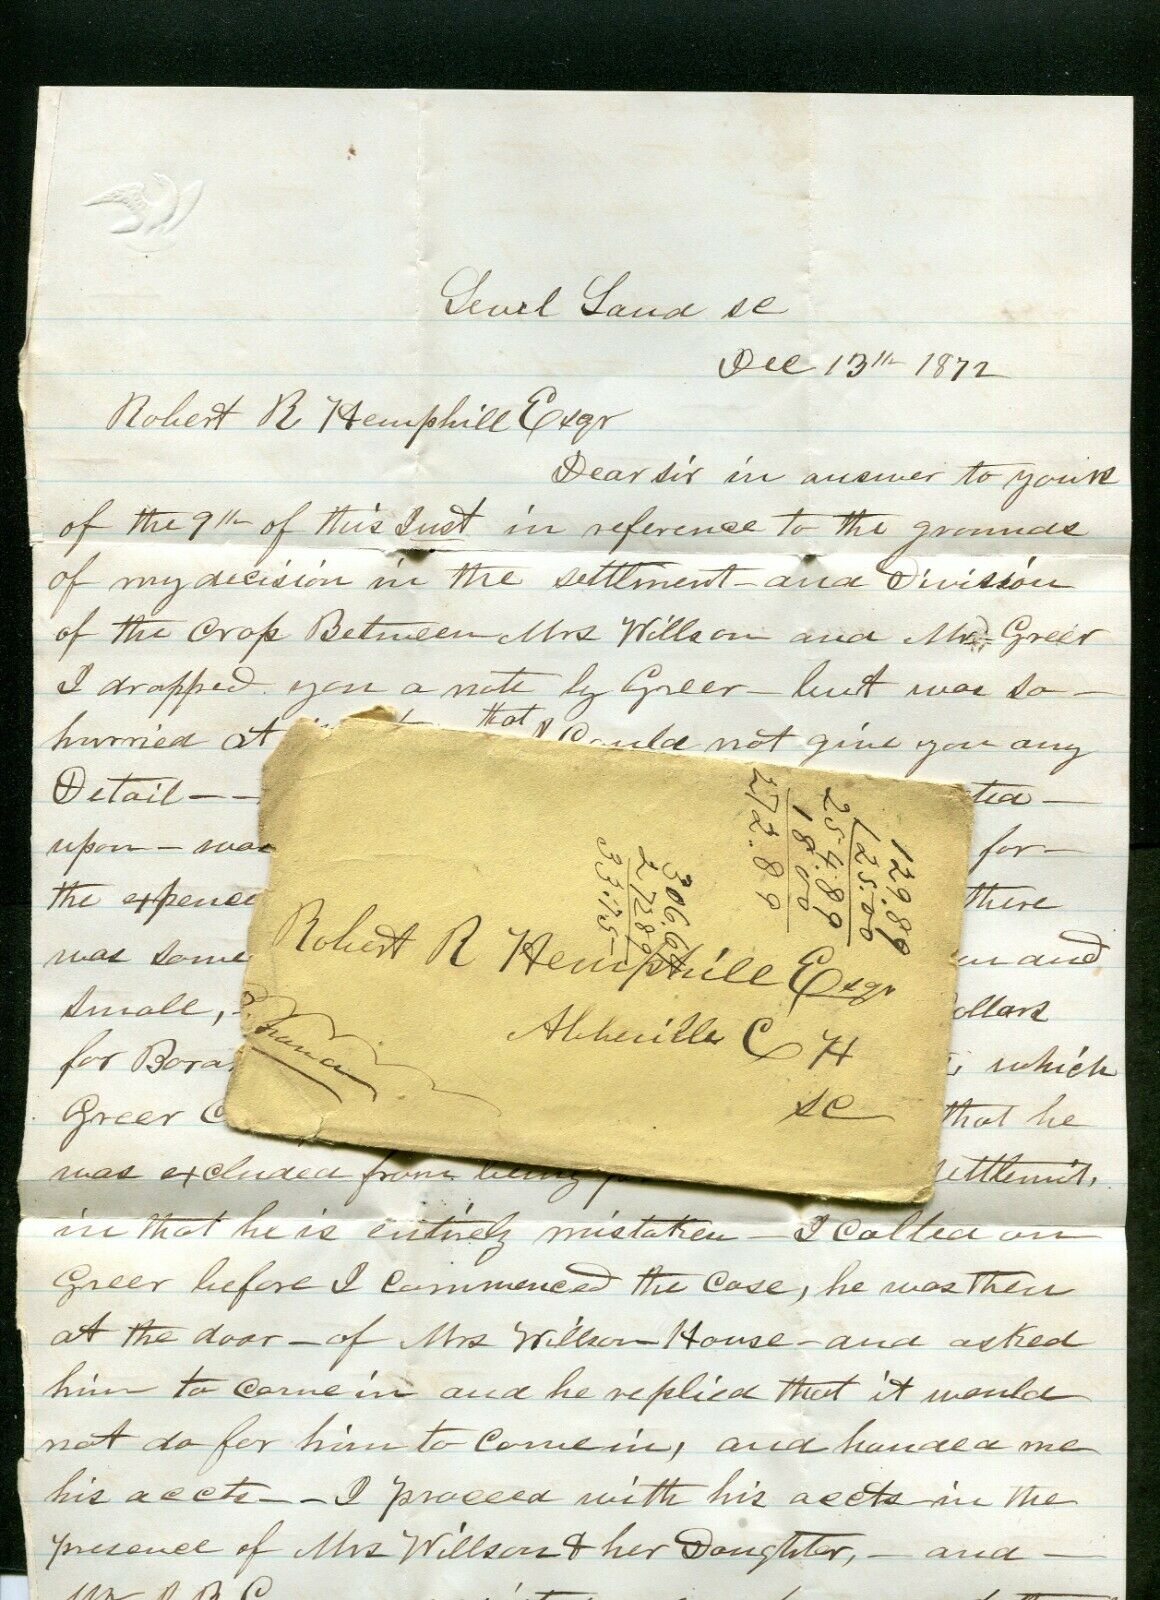 Level Land SC
Dec 13th 1872
Robert R Hemphill Esqr
Dear sir in answer to yours
of the 9th of this Inst in reference to the grounds
of my decision in the settlment - and Division
of the Crop Between Mrs Willson and Mr Greer
I dropped you a note by Greer - but was so -
hurried at that I Could not give you any
Detail - -
upon - was for -
the expence there
was some and
small, Dollars
for which
Greer that he
was excluded from being settlemnt,
in that he is entirely mistaken - I called on
Greer before I commenced the Case, he was then
at the door - of Mrs Willson House - and asked
him to come in and he replied that it would
not do for him to come in, and handed me
his accts - - I proceed with his accts in the
presence of Mrs Willson & her Daughter, - and -
129.89
125.00
254.89
18.00
272.89
306.64
272.89
33.75
Robert R Hemphill Esqr
Abbeville C H
SC